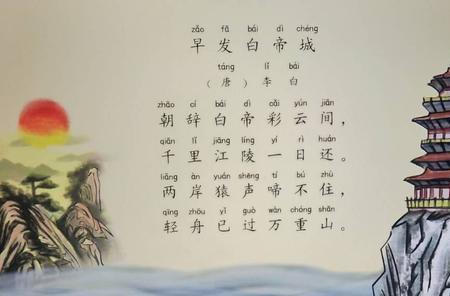 zǎo fā bái dì chéng
早发白帝城
táng lǐ bái
（唐）李白
zhāo cí bái dì cǎi yún jiān
朝辞白帝彩云间，
qiān lǐ jiāng líng yí rì huán
千里江陵一日还。
liǎng àn yuán shēng tí bú zhù
两岸猿声啼不住，
qīng zhōu yǐ guò wàn chóng shān
轻舟已过万重山。